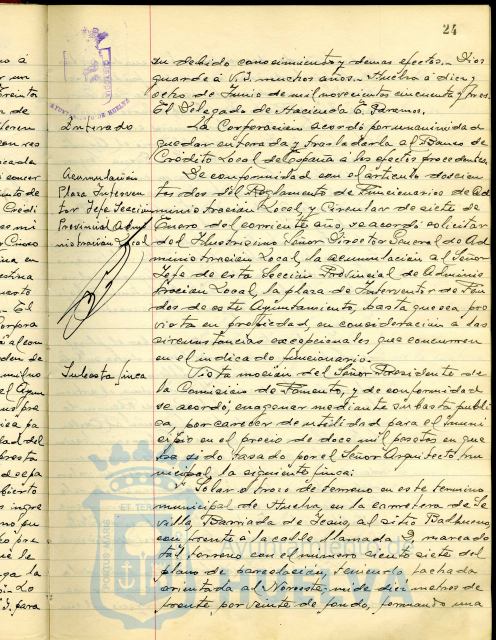 24
su debido conocimiento y demas efectos.- Dios
guarde á V.I. muchos años.- Huelva á diez y
ocho de Junio de mil novecientos cincuenta y tres.
El Delegado de Hacienda E. Páramos.
Enterado
La Corporacion acordó por unanimidad
quedar enterada y trasladarla al Banco de
Crédito Local de España a los efectos procedentes.
Acumulación
Plaza Interven
tor Jefe Sección
Provincial Admi
nistración Local
De conformidad con el articulo doscien
tos dos del Reglamento de Funcionarios de Ad
ministración Local y Circular de siete de
Enero del corriente año, se acordó solicitar
del Ilustrisimo Señor Director General de Ad
ministración Local, la acumulación al Señor
Jefe de esta Sección Provincial de Adminis
tracion Local, la plaza de Interventor de Fon
dos de este Ayuntamiento, hasta que sea pro
vista en propiedad, en consideración a las
circunstancias excepcionales que concurren
en el indicado funcionario.
Subasta finca
Vista mocion del Señor Presidente de
la Comisión de Fomento, y de conformidad
se acordó, enagenar mediante subasta públi
ca, por carecer de utilidad para el muni
cipio en el precio de doce mil pesetas en que
ha sido tasado por el Señor Arquitecto mu
nicipal, la siguiente finca:
Solar ó trozo de terreno en este termino
municipal de Huelva, en la carretera de Se
villa, Barriada de Icaiu, al sitio Balbueno,
con frente á la calle llamada 2, marcado
tal terreno con el numero ciento siete del
plano de parcelación, teniendo fachada
orientada al Noroeste; mide diez metros de
frente, por veinte de fondo, formando una
AYUNTAMIENTO DE HUELVA
PORTUS MARIS ET TERRAE
HUELVA